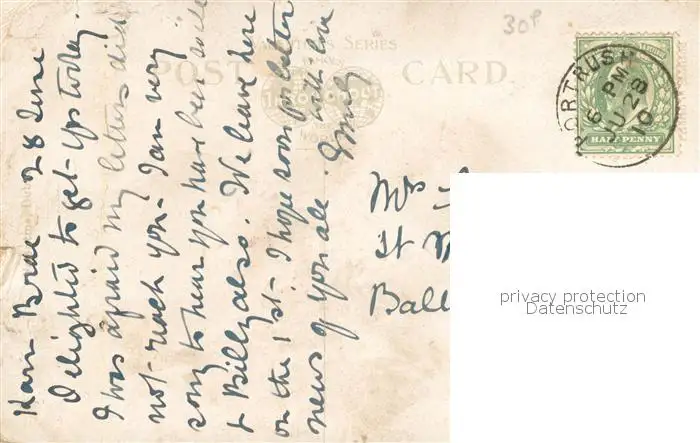 28 June
Delighted to get yrs today.
I was afraid my letters did
not reach you. I am very
sorry to hear you have been so ill
& Billy also. We leave here
on the 1st. I hope soon for better
news of you all. with love
Emily
VALENTINE'S SERIES
POST CARD
30P
PORTRUSH
6 PM
JU 28
10
HALF PENNY
Mrs
St
Ball
privacy protection
Datenschutz